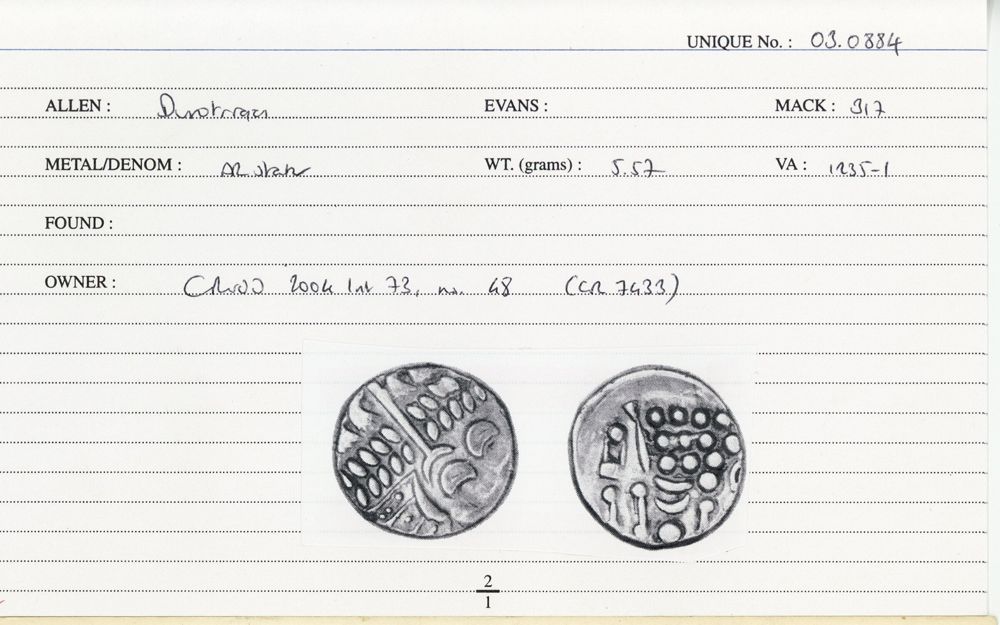 UNIQUE No. : 03.0884
ALLEN : Durotrigan EVANS : MACK : 317
METAL/DENOM : AR stater WT. (grams) : 5.57 VA : 1235-1
FOUND :
OWNER : 2004 list 73, no. 48 (CR 7433)
2
1